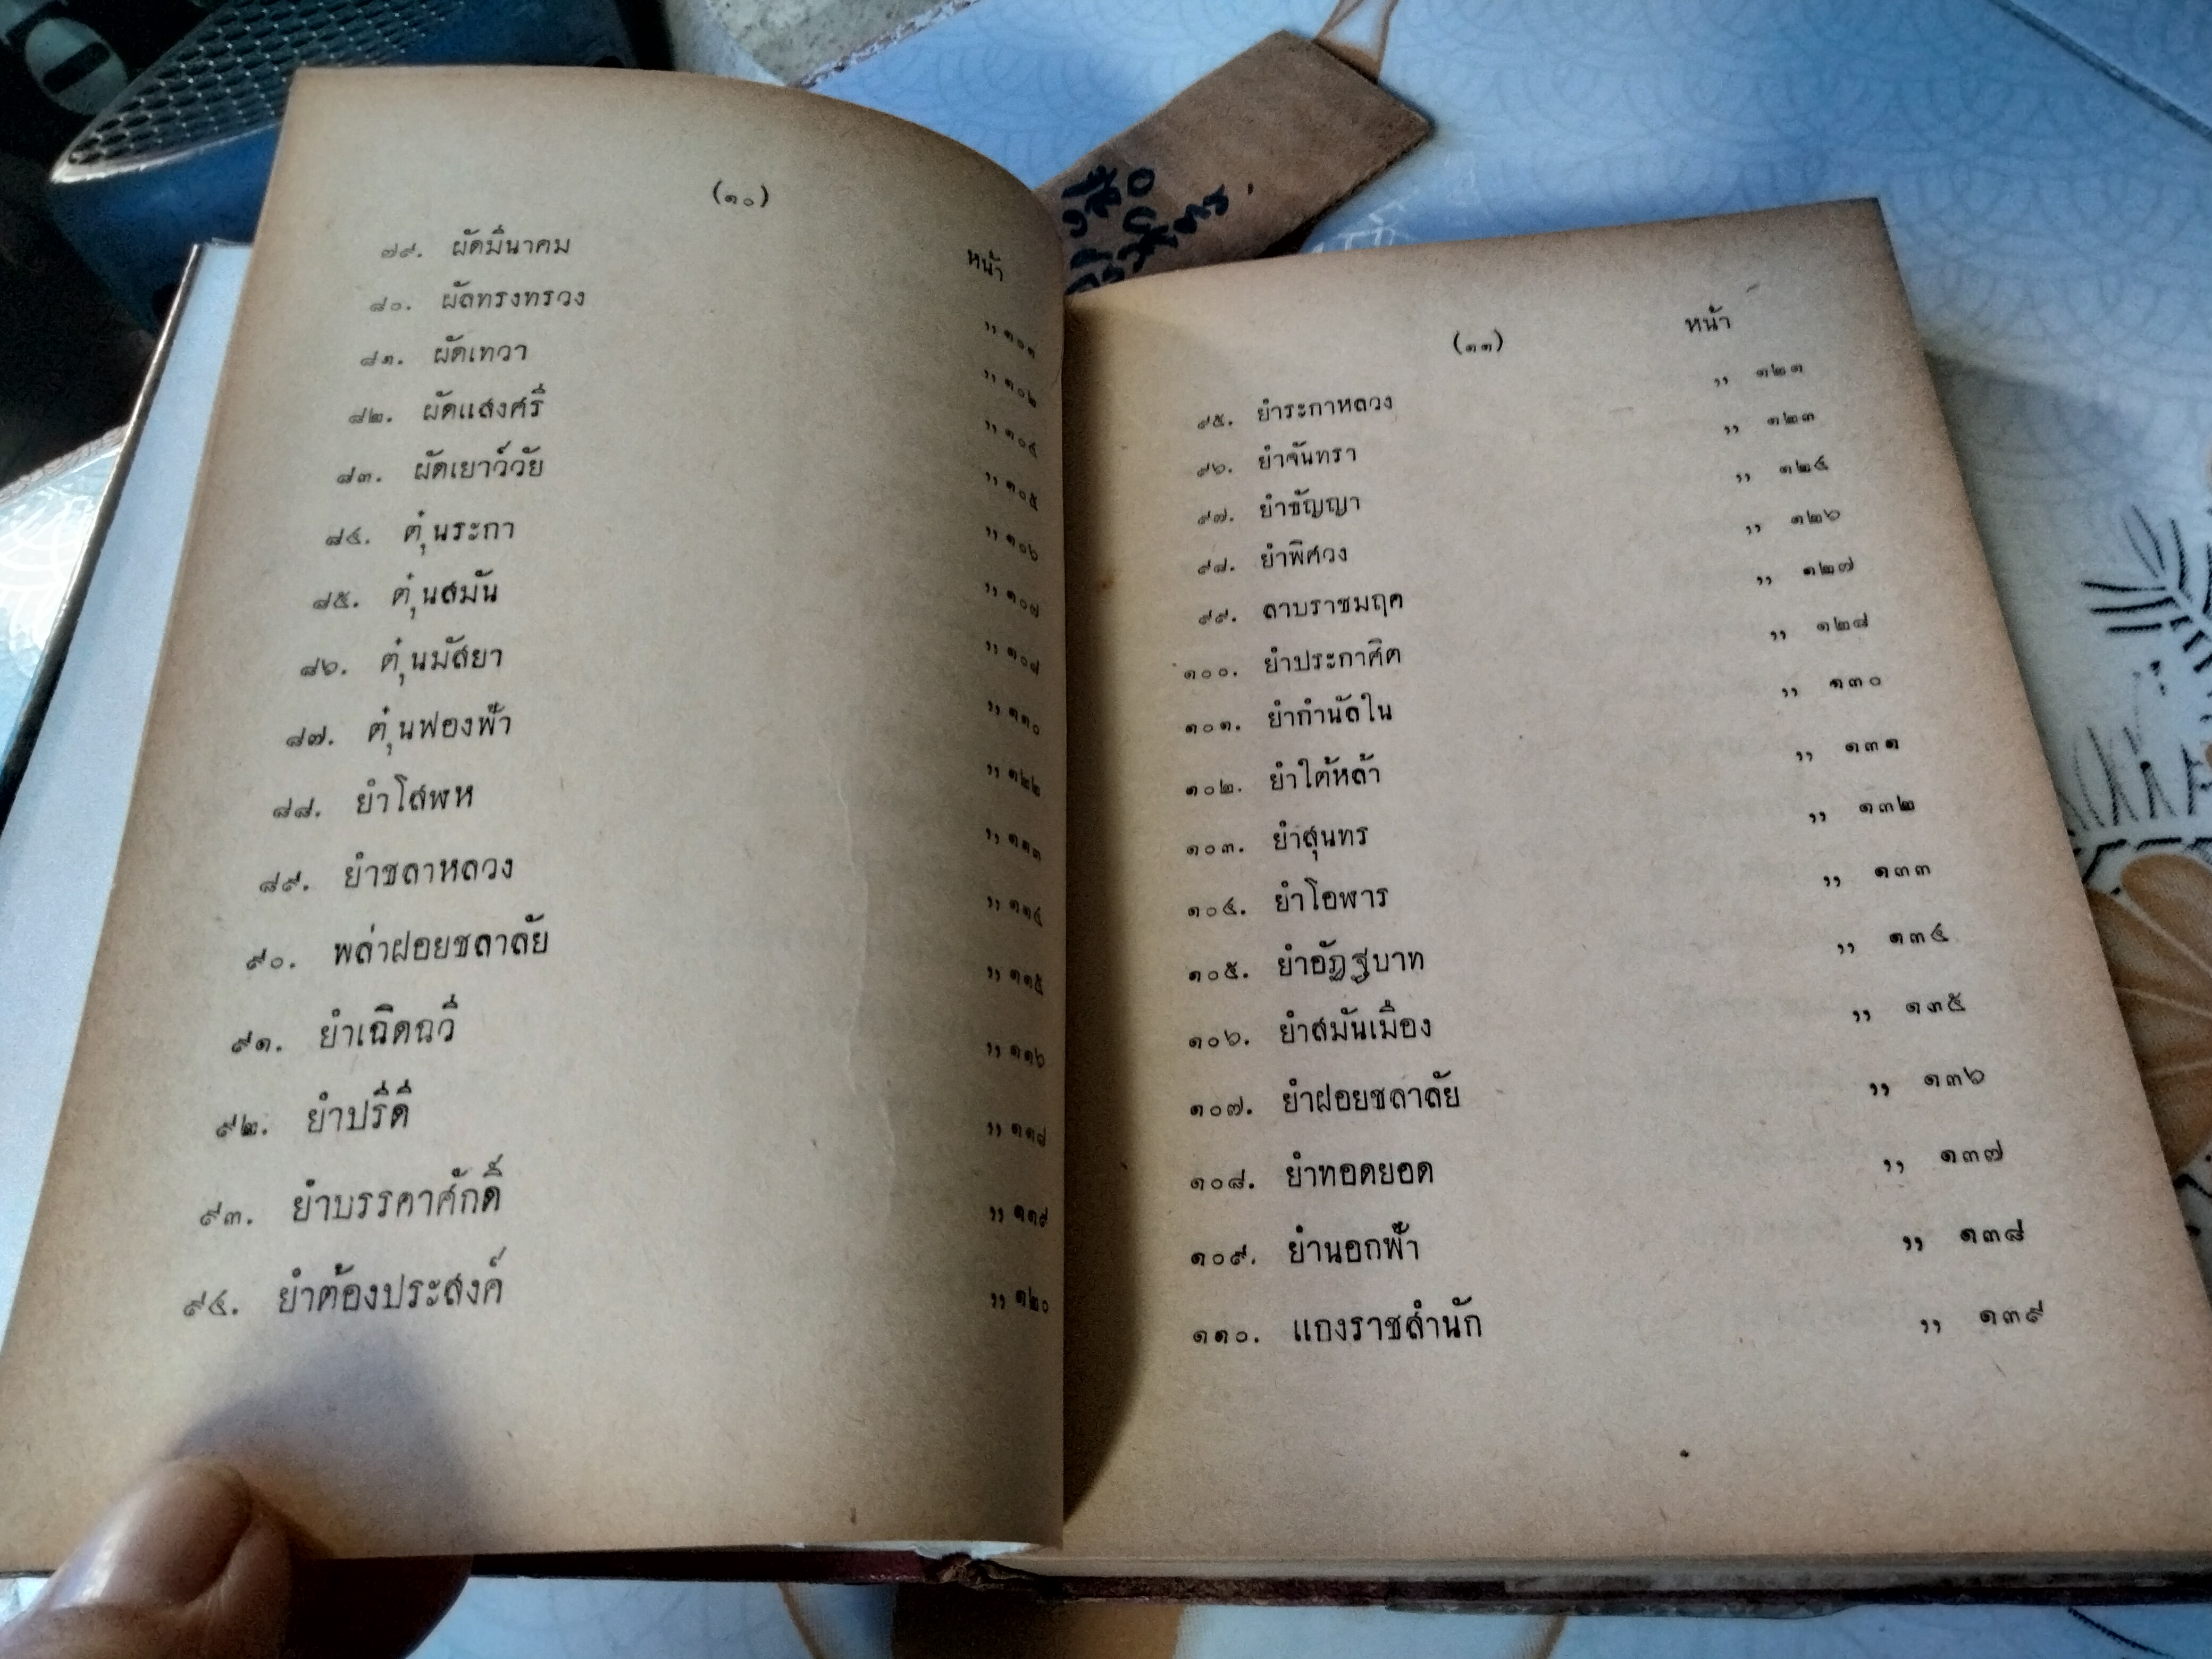 (๑๐)
หน้า
๗๙. ผัดมีนาคม ,, ๑๐๑
๘๐. ผัดทรงทรวง ,, ๑๐๒
๘๑. ผัดเทวา ,, ๑๐๔
๘๒. ผัดแสงศรี ,, ๑๐๕
๘๓. ผัดเยาว์วัย ,, ๑๐๖
๘๔. ตุ๋นระกา ,, ๑๐๗
๘๕. ตุ๋นสมัน ,, ๑๐๘
๘๖. ตุ๋นมัสยา ,, ๑๑๐
๘๗. ตุ๋นฟองฟ้า ,, ๑๒๒
๘๘. ยำโสพห ,, ๑๑๓
๘๙. ยำชลาหลวง ,, ๑๑๔
๙๐. พล่าฝอยชลาลัย ,, ๑๑๕
๙๑. ยำเฉิดฉวี ,, ๑๑๖
๙๒. ยำปรีดี ,, ๑๑๘
๙๓. ยำบรรดาศักดิ์ ,, ๑๑๙
๙๔. ยำต้องประสงค์ ,, ๑๒๐
(๑๑)
หน้า
๙๕. ยำระกาหลวง ,, ๑๒๑
๙๖. ยำจันทรา ,, ๑๒๓
๙๗. ยำธัญญา ,, ๑๒๔
๙๘. ยำพิศวง ,, ๑๒๖
๙๙. ลาบราชมฤค ,, ๑๒๗
๑๐๐. ยำประกาศิต ,, ๑๒๘
๑๐๑. ยำกำนัลใน ,, ๑๓๐
๑๐๒. ยำใต้หล้า ,, ๑๓๑
๑๐๓. ยำสุนทร ,, ๑๓๒
๑๐๔. ยำโอฬาร ,, ๑๓๓
๑๐๕. ยำอัฏฐบาท ,, ๑๓๔
๑๐๖. ยำสมันเมือง ,, ๑๓๕
๑๐๗. ยำฝอยชลาลัย ,, ๑๓๖
๑๐๘. ยำทอดยอด ,, ๑๓๗
๑๐๙. ยำนอกฟ้า ,, ๑๓๘
๑๑๐. แกงราชสำนัก ,, ๑๓๙